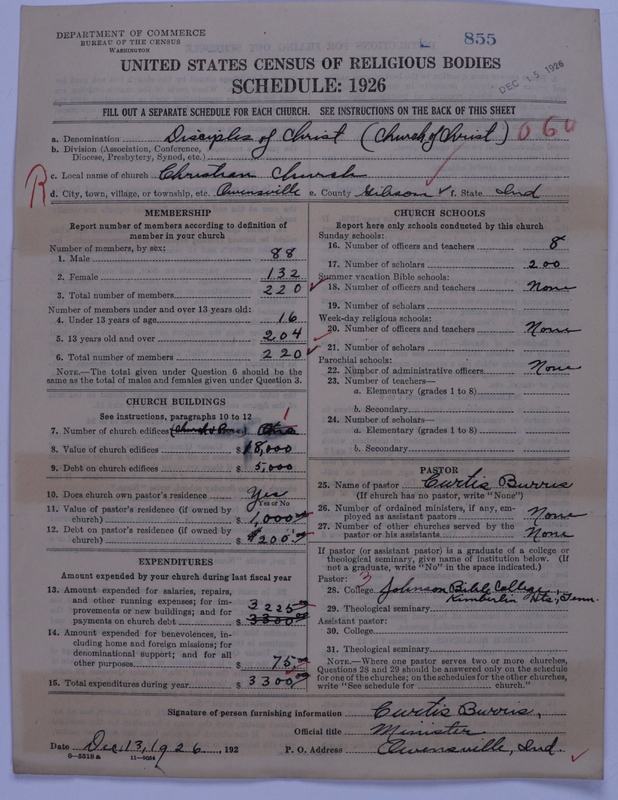 DEPARTMENT OF COMMERCE
BUREAU OF THE CENSUS
WASHINGTON
855
DEC 15 1926
UNITED STATES CENSUS OF RELIGIOUS BODIES
SCHEDULE: 1926
FILL OUT A SEPARATE SCHEDULE FOR EACH CHURCH. SEE INSTRUCTIONS ON THE BACK OF THIS SHEET
a. Denomination Disciples of Christ (Church of Christ) 060
b. Division (Association, Conference, Diocese, Presbytery, Synod, etc.)
R
c. Local name of church Christian Church
d. City, town, village, or township, etc. Owensville e. County Gibson f. State Ind
MEMBERSHIP
Report number of members according to definition of member in your church
Number of members, by sex:
1. Male 88
2. Female 132
3. Total number of members 220
Number of members under and over 13 years old:
4. Under 13 years of age 16
5. 13 years old and over 204
6. Total number of members 220
NOTE.—The total given under Question 6 should be the same as the total of males and females given under Question 3.
CHURCH BUILDINGS
See instructions, paragraphs 10 to 12
7. Number of church edifices 1
8. Value of church edifices $ 18,000
9. Debt on church edifices $ 5,000
10. Does church own pastor's residence Yes
Yes or No
11. Value of pastor's residence (if owned by church) $ 1,000 00
12. Debt on pastor's residence (if owned by church) $ 200 00
EXPENDITURES
Amount expended by your church during last fiscal year
13. Amount expended for salaries, repairs, and other running expenses; for improvements or new buildings; and for payments on church debt $ 3225 3300 00
14. Amount expended for benevolences, including home and foreign missions; for denominational support; and for all other purposes $ 75 00
15. Total expenditures during year $ 3300 00
CHURCH SCHOOLS
Report here only schools conducted by this church
Sunday schools:
16. Number of officers and teachers 8
17. Number of scholars 200
Summer vacation Bible schools:
18. Number of officers and teachers None
19. Number of scholars
Week-day religious schools:
20. Number of officers and teachers None
21. Number of scholars
Parochial schools:
22. Number of administrative officers None
23. Number of teachers—
a. Elementary (grades 1 to 8)
b. Secondary
24. Number of scholars—
a. Elementary (grades 1 to 8)
b. Secondary
PASTOR
25. Name of pastor Curtis Burris
(If church has no pastor, write "None")
26. Number of ordained ministers, if any, employed as assistant pastors None
27. Number of other churches served by the pastor or his assistants None
If pastor (or assistant pastor) is a graduate of a college or theological seminary, give name of institution below. (If not a graduate, write "No" in the space indicated.)
Pastor: 3
28. College Johnson Bible College, Kimberlin Hts, Tenn.
29. Theological seminary
Assistant pastor:
30. College
31. Theological seminary
NOTE.—Where one pastor serves two or more churches, Questions 28 and 29 should be answered only on the schedule for one of the churches; on the schedules for the other churches, write "See schedule for church."
Signature of person furnishing information Curtis Burris,
Official title Minister
Date Dec, 13, 1926, 192
P. O. Address Owensville, Ind.
8—5518a
11—9054